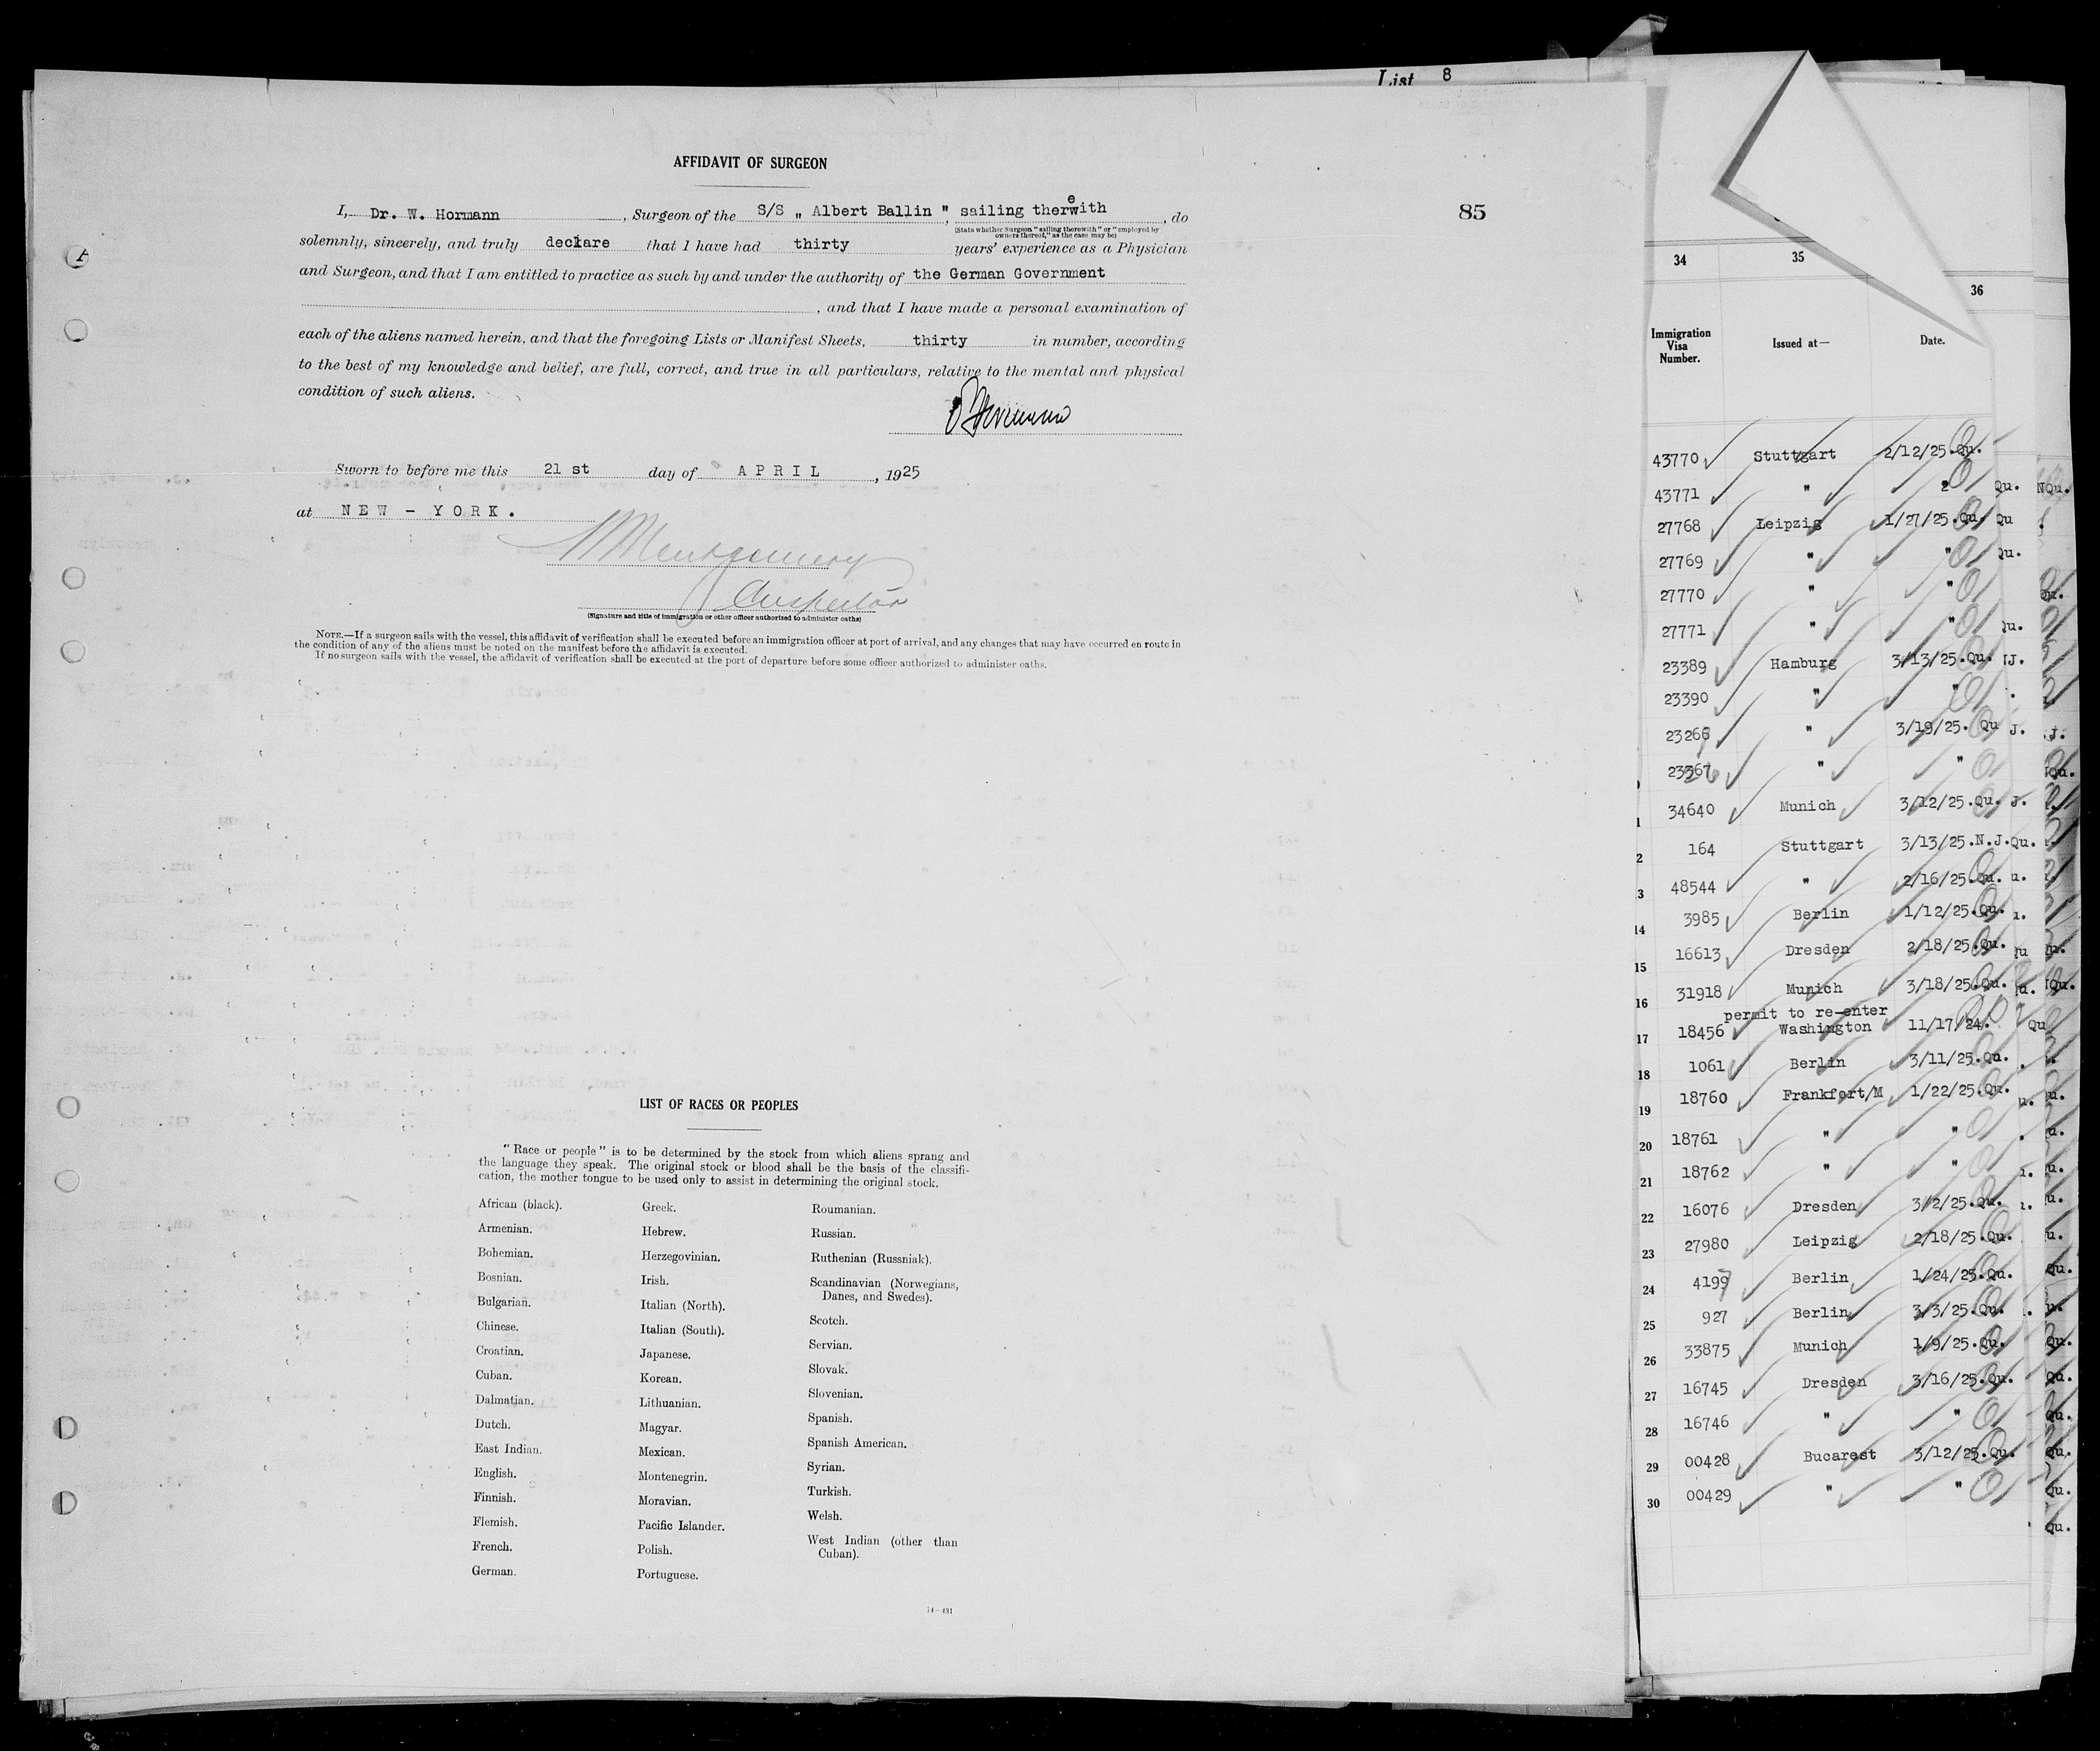 List 8
AFFIDAVIT OF SURGEON
85
I, Dr. W. Hormann, Surgeon of the S/S „ Albert Ballin " sailing therewith, do
(State whether Surgeon "sailing therewith" or "employed by
owners thereof," as the case may be)
solemnly, sincerely, and truly declare that I have had thirty years' experience as a Physician
and Surgeon, and that I am entitled to practice as such by and under the authority of the German Government
, and that I have made a personal examination of
each of the aliens named herein, and that the foregoing Lists or Manifest Sheets, thirty in number, according
to the best of my knowledge and belief, are full, correct, and true in all particulars, relative to the mental and physical
condition of such aliens.
Sworn to before me this 21 st day of APRIL, 1925
at NEW - YORK.
Montgomery
Inspector
(Signature and title of immigration or other officer authorized to administer oaths)
NOTE.—If a surgeon sails with the vessel, this affidavit of verification shall be executed before an immigration officer at port of arrival, and any changes that may have occurred en route in
the condition of any of the aliens must be noted on the manifest before the affidavit is executed.
If no surgeon sails with the vessel, the affidavit of verification shall be executed at the port of departure before some officer authorized to administer oaths.
LIST OF RACES OR PEOPLES
"Race or people" is to be determined by the stock from which aliens sprang and
the language they speak. The original stock or blood shall be the basis of the classifi-
cation, the mother tongue to be used only to assist in determining the original stock.
African (black).
Armenian.
Bohemian.
Bosnian.
Bulgarian.
Chinese.
Croatian.
Cuban.
Dalmatian.
Dutch.
East Indian.
English.
Finnish.
Flemish.
French.
German.
Greek.
Hebrew.
Herzegovinian.
Irish.
Italian (North).
Italian (South).
Japanese.
Korean.
Lithuanian.
Magyar.
Mexican.
Montenegrin.
Moravian.
Pacific Islander.
Polish.
Portuguese.
Roumanian.
Russian.
Ruthenian (Russniak).
Scandinavian (Norwegians,
Danes, and Swedes).
Scotch.
Servian.
Slovak.
Slovenian.
Spanish.
Spanish American.
Syrian.
Turkish.
Welsh.
West Indian (other than
Cuban).
14—431
34 35 36
Immigration
Visa
Number.
Issued at—
Date.
43770 Stuttgart 2/12/25.Qu.
43771 "
27768 Leipzig 1/27/25.Qu.
27769 " "
27770 " "
27771 " "
23389 Hamburg 3/13/25.Qu.
23390 " "
23266 " 3/19/25.Qu
" "
34640 Munich 3/12/25.Qu.
2 164 Stuttgart 3/13/25.N.J.Qu.
3 48544 " 2/16/25.Qu.
14 3985 Berlin 1/12/25.Qu.
15 16613 Dresden 2/18/25.Qu.
16 31918 Munich 3/18/25.Qu.
permit to re-enter
17 18456 Washington 11/17/24.
18 1061 Berlin 3/11/25.Qu.
19 18760 Frankfort/M 1/22/25.Qu.
20 18761 " "
21 18762 " "
22 16076 Dresden 3/2/25.Qu.
23 27980 Leipzig 2/18/25.Qu.
24 4199 Berlin 1/24/25.Qu.
25 927 Berlin 3/3/25.Qu.
26 33875 Munich 1/9/25.Qu.
27 16745 Dresden 3/16/25.Qu.
28 16746 " "
29 00428 Bucarest 3/12/25.Qu.
30 00429 " "